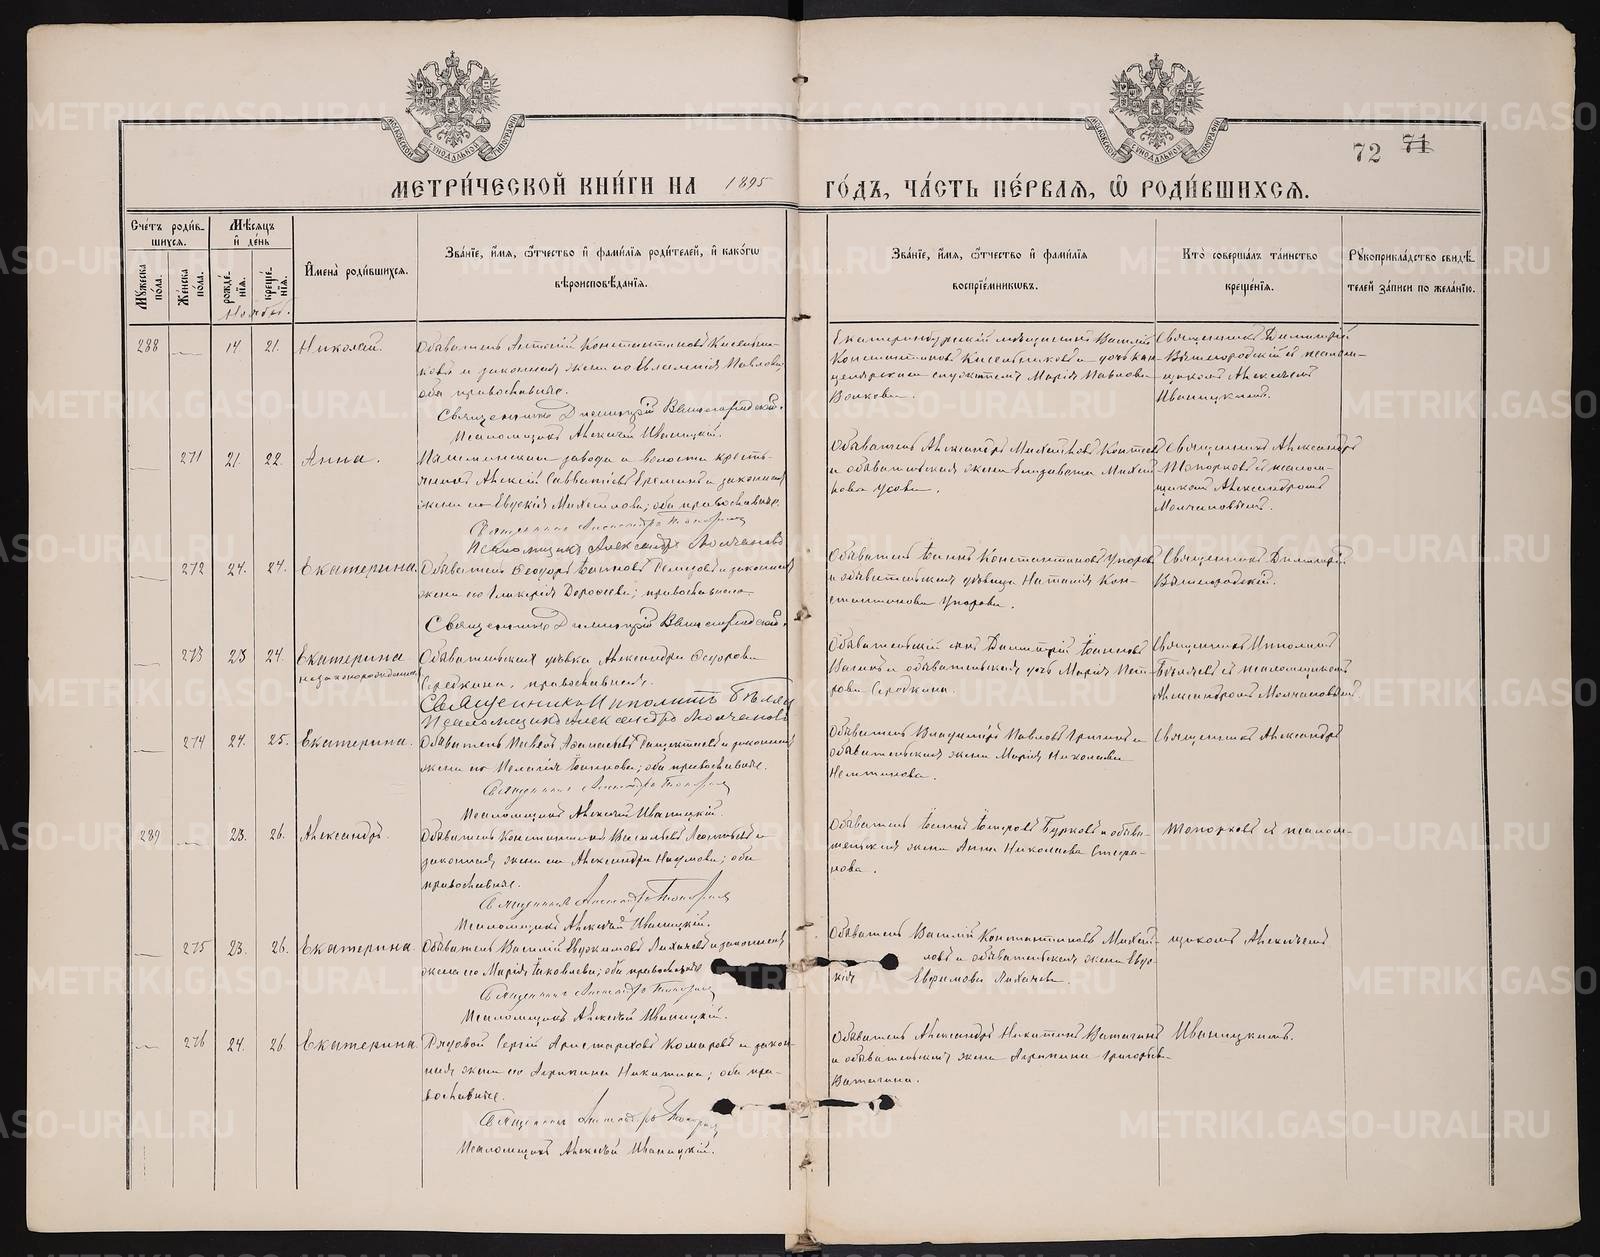 МОСКОВСКОЙ СѴНОДАЛЬНОЙ ТИПОГРАФІИ
МОСКОВСКОЙ СѴНОДАЛЬНОЙ ТИПОГРАФІИ
72 71
МЕТРИ́ЧЕСКОЙ КНИ́ГИ НА 1895 ГО́ДЪ, ЧА́СТЬ ПЕ́РВАЯ, Ѡ҆ РОДИ́ВШИХСЯ.
Сче́тъ роди́в-
шихся.
Мѣ́сяцъ
и҆ де́нь
Му́жеска
по́ла.
Же́нска
по́ла.
рожде́-
нїя.
креще́-
нїя.
Ноябрь.
И҆мена̀ роди́вшихся.
Зва́нїе, и҆́мя, ѻ҆́тчество и҆ фами́лїя роди́телей, и҆ како́гѡ
вѣроисповѣ́данїя.
Зва́нїе, и҆́мя, ѻ҆́тчество и҆ фами́лїя
воспрїе́мникѡвъ.
Кто̀ соверша́лъ та́инство
креще́нїя.
Рꙋкоприкла́дство свидѣ́-
телей за́писи по жела́нїю.
288 — 14. 21. Николай.
Обыватель Антоній Константиновъ
и законная жена его Евлампія Павлова;
оба православные.
Священникъ Димитрій
Псаломщикъ Алексѣй Иваницкій.
Екатеринбургскій мѣщанинъ Василій
Константиновъ и дочь кан-
целярскаго служителя Марія Павлова
Волкова.
Священникъ Димитрій
съ псалом-
щикомъ Алексѣемъ
Иваницкимъ.
— 271 21. 22. Анна.
завода и волости кресть-
янинъ Алексій Савватіевъ Ереминъ и законная
жена его Евдокія Михайлова; оба православные.
Священникъ Александръ Топорковъ
Псаломщикъ Александръ Молчановъ
Обыватель Александръ Михайловъ
и обывательская жена Елизавета Михай-
лова Усова.
Священникъ Александръ
Топорковъ съ псалом-
щикомъ Александромъ
Молчановымъ.
— 272 24. 24. Екатерина.
Обыватель Ѳеодоръ Іоанновъ и законная
жена его Гликерія Дороѳеева; православные.
Священникъ Димитрій
Обыватель Іоаннъ Константиновъ Упоровъ
и обывательская дѣвица Наталія Кон-
стантинова Упорова.
Священникъ Димитрій
— 273 23 24. Екатерина
незаконорожденная.
Обывательская дѣвка Александра Ѳедорова
Середкина, православная.
Священникъ Ипполитъ Бѣляевъ
Псаломщикъ Александръ Молчановъ
Обывательскій сынъ Димитрій Іоанновъ
и обывательская дочь Марія Пет-
рова Середкина.
Священникъ Ипполитъ
Бѣляевъ съ псаломщикомъ
Александромъ Молчановымъ.
— 274 24. 25. Екатерина.
Обыватель Павелъ Аѳанасьевъ и законная
жена его Пелагія Іоаннова; оба православные.
Священникъ Александръ Топорковъ
Псаломщикъ Алексѣй Иваницкій.
Обыватель Владиміръ Павловъ и
обывательская жена Марія Николаева
Священникъ Александръ
289 — 23. 26. Александръ.
Обыватель Константинъ Васильевъ и
законная жена его Александра Наумова; оба
православные.
Священникъ Александръ Топорковъ
Псаломщикъ Алексѣй Иваницкій.
Обыватель Бурковъ и обыва-
тельская жена Анна Николаева Стефа-
нова.
Топорковъ съ псалом-
— 275 23. 26. Екатерина.
Обыватель Василій Евдокимовъ Лихачевъ и законная
жена его Марія Іаковлева; оба православные
Священникъ Александръ Топорковъ
Псаломщикъ Алексѣй Иваницкій.
Обыватель Василій Константиновъ Михай-
ловъ и обывательская жена Евдо-
кія Ефимова Лихачева.
щикомъ Алексѣемъ
— 276 24. 26 Екатерина.
Рядовой Сергій Аристарховъ Комаровъ и закон-
ная жена его Агрипина Никитина; оба пра-
вославные.
Священникъ Александръ Топорковъ
Псаломщикъ Алексѣй Иваницкій.
Обыватель Александръ Никитинъ Ватагинъ
и обывательская жена Агрипина Григорьева
Ватагина.
Иваницкимъ.
METRIKI.GASO-URAL.RU